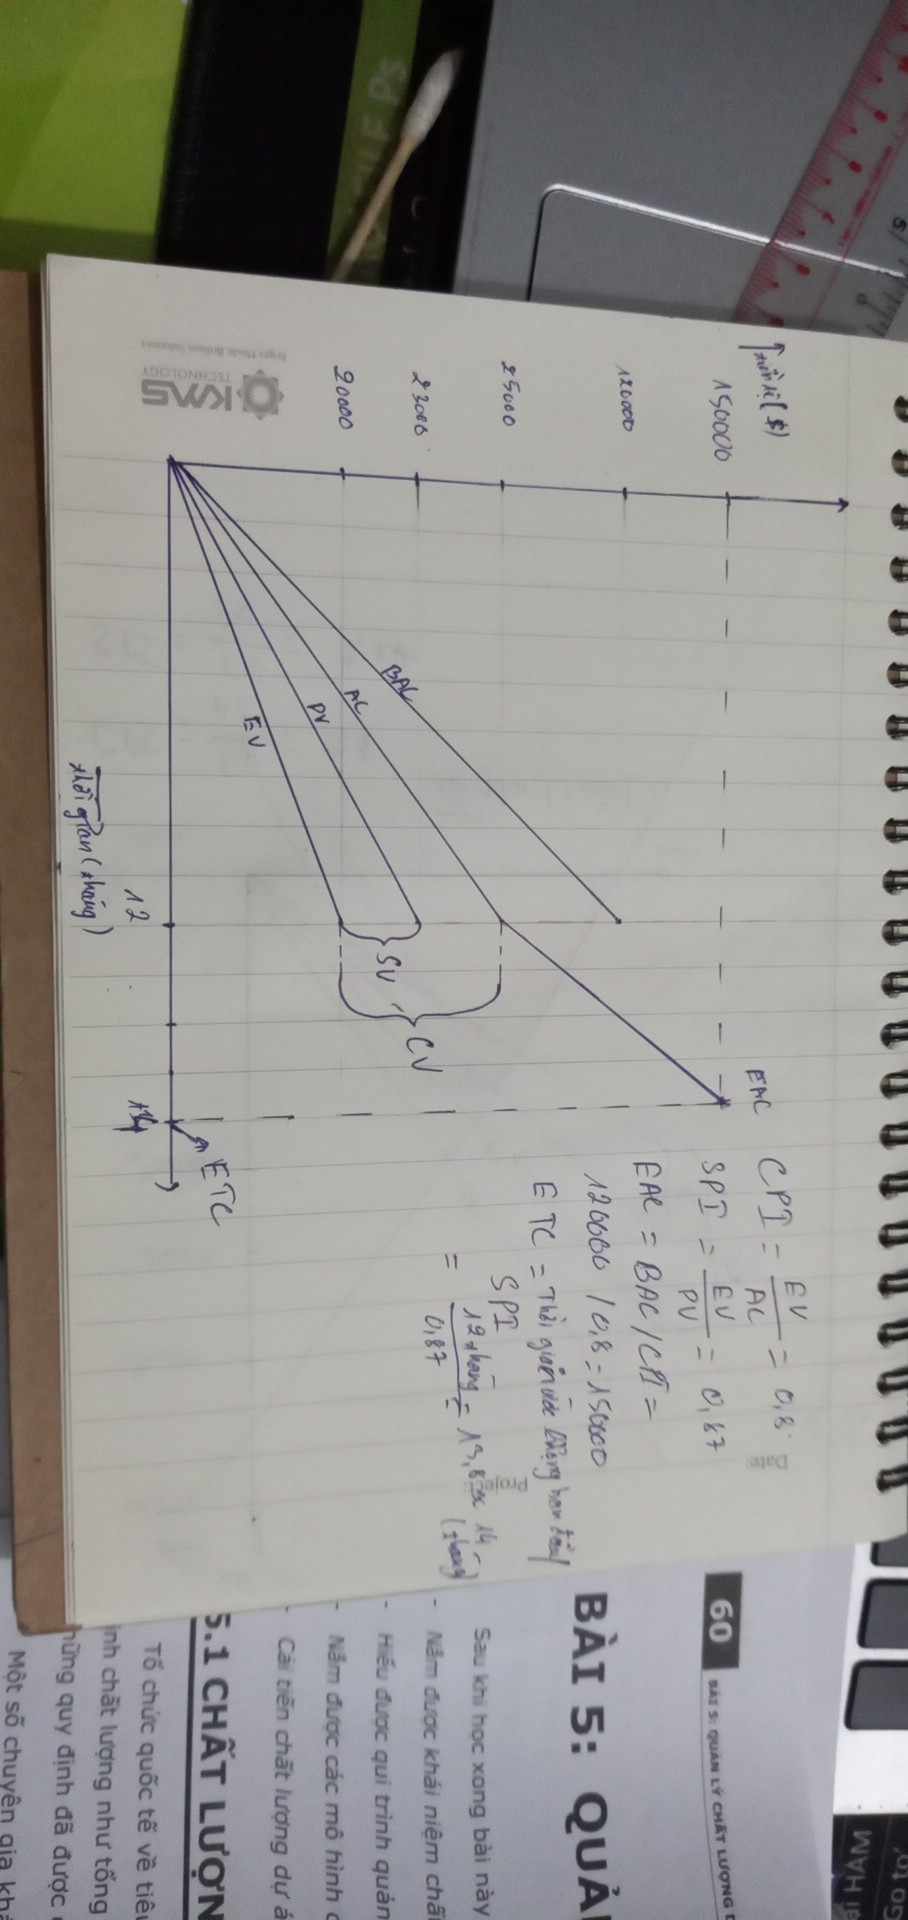 tiền tệ ($)
150000
120000
25000
23000
20000
EAC
BAC
AC
PV
EV
SV
CV
ETC
12
14
thời gian (tháng)
CPI = EV / AC = 0,8
SPI = EV / PV = 0,87
EAC = BAC / CPI =
120000 / 0,8 = 150000
ETC = Thời gian ước lượng ban đầu /
SPI
= 12 tháng / 0,87 = 13,8 ≈ 14
(tháng)
Date:
Projec
KMS
TECHNOLOGY
5
60 BÀI 5: QUẢN LÝ CHẤT LƯỢNG
BÀI 5: QUẢ
Sau khi học xong bài này
- Nắm được khái niệm chấ
- Hiểu được qui trình quản
- Nắm được các mô hình
- Cải tiến chất lượng dự á
5.1 CHẤT LƯỢN
Tổ chức quốc tế về tiê
ính chất lượng như tổng
những quy định đã được
Một số chuyên gia kh